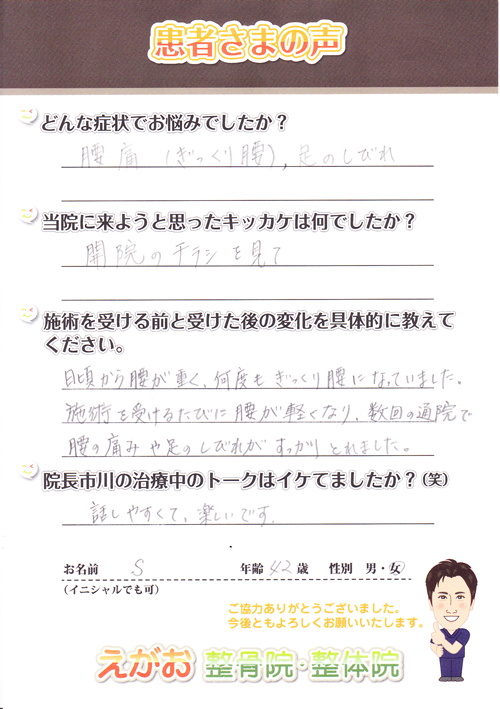 患者さまの声
どんな症状でお悩みでしたか？
腰痛（ぎっくり腰）, 足のしびれ
当院に来ようと思ったキッカケは何でしたか？
開院のチラシを見て
施術を受ける前と受けた後の変化を具体的に教えて
ください。
日頃から腰が重く、何度もぎっくり腰になっていました。
施術を受けるたびに腰が軽くなり、数回の通院で
腰の痛みや足のしびれがすっかりとれました。
院長市川の治療中のトークはイケてましたか？（笑）
話しやすくて、楽しいです。
お名前 S 年齢 42 歳 性別 男・女
（イニシャルでも可）
ご協力ありがとうございました。
今後ともよろしくお願いいたします。
えがお 整骨院・整体院